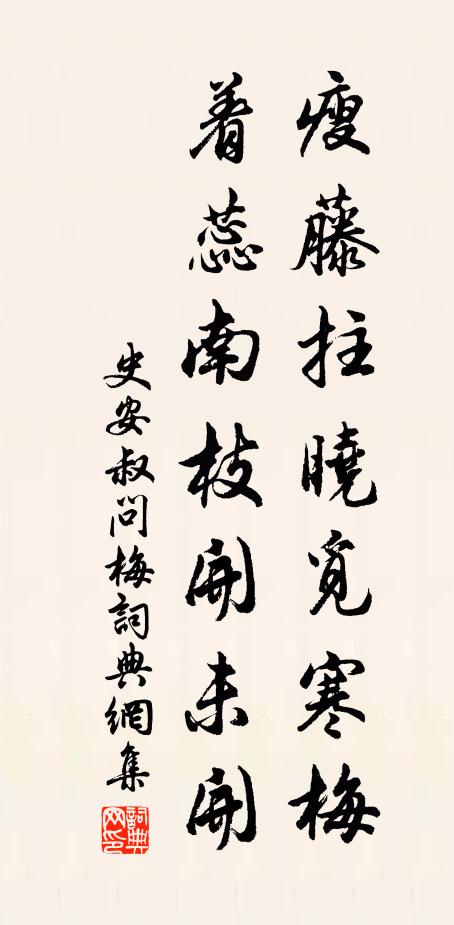 瘦藤拄曉覓寒梅
着蕊南枝開未開
史安叔問梅詞典網集
詞典网印